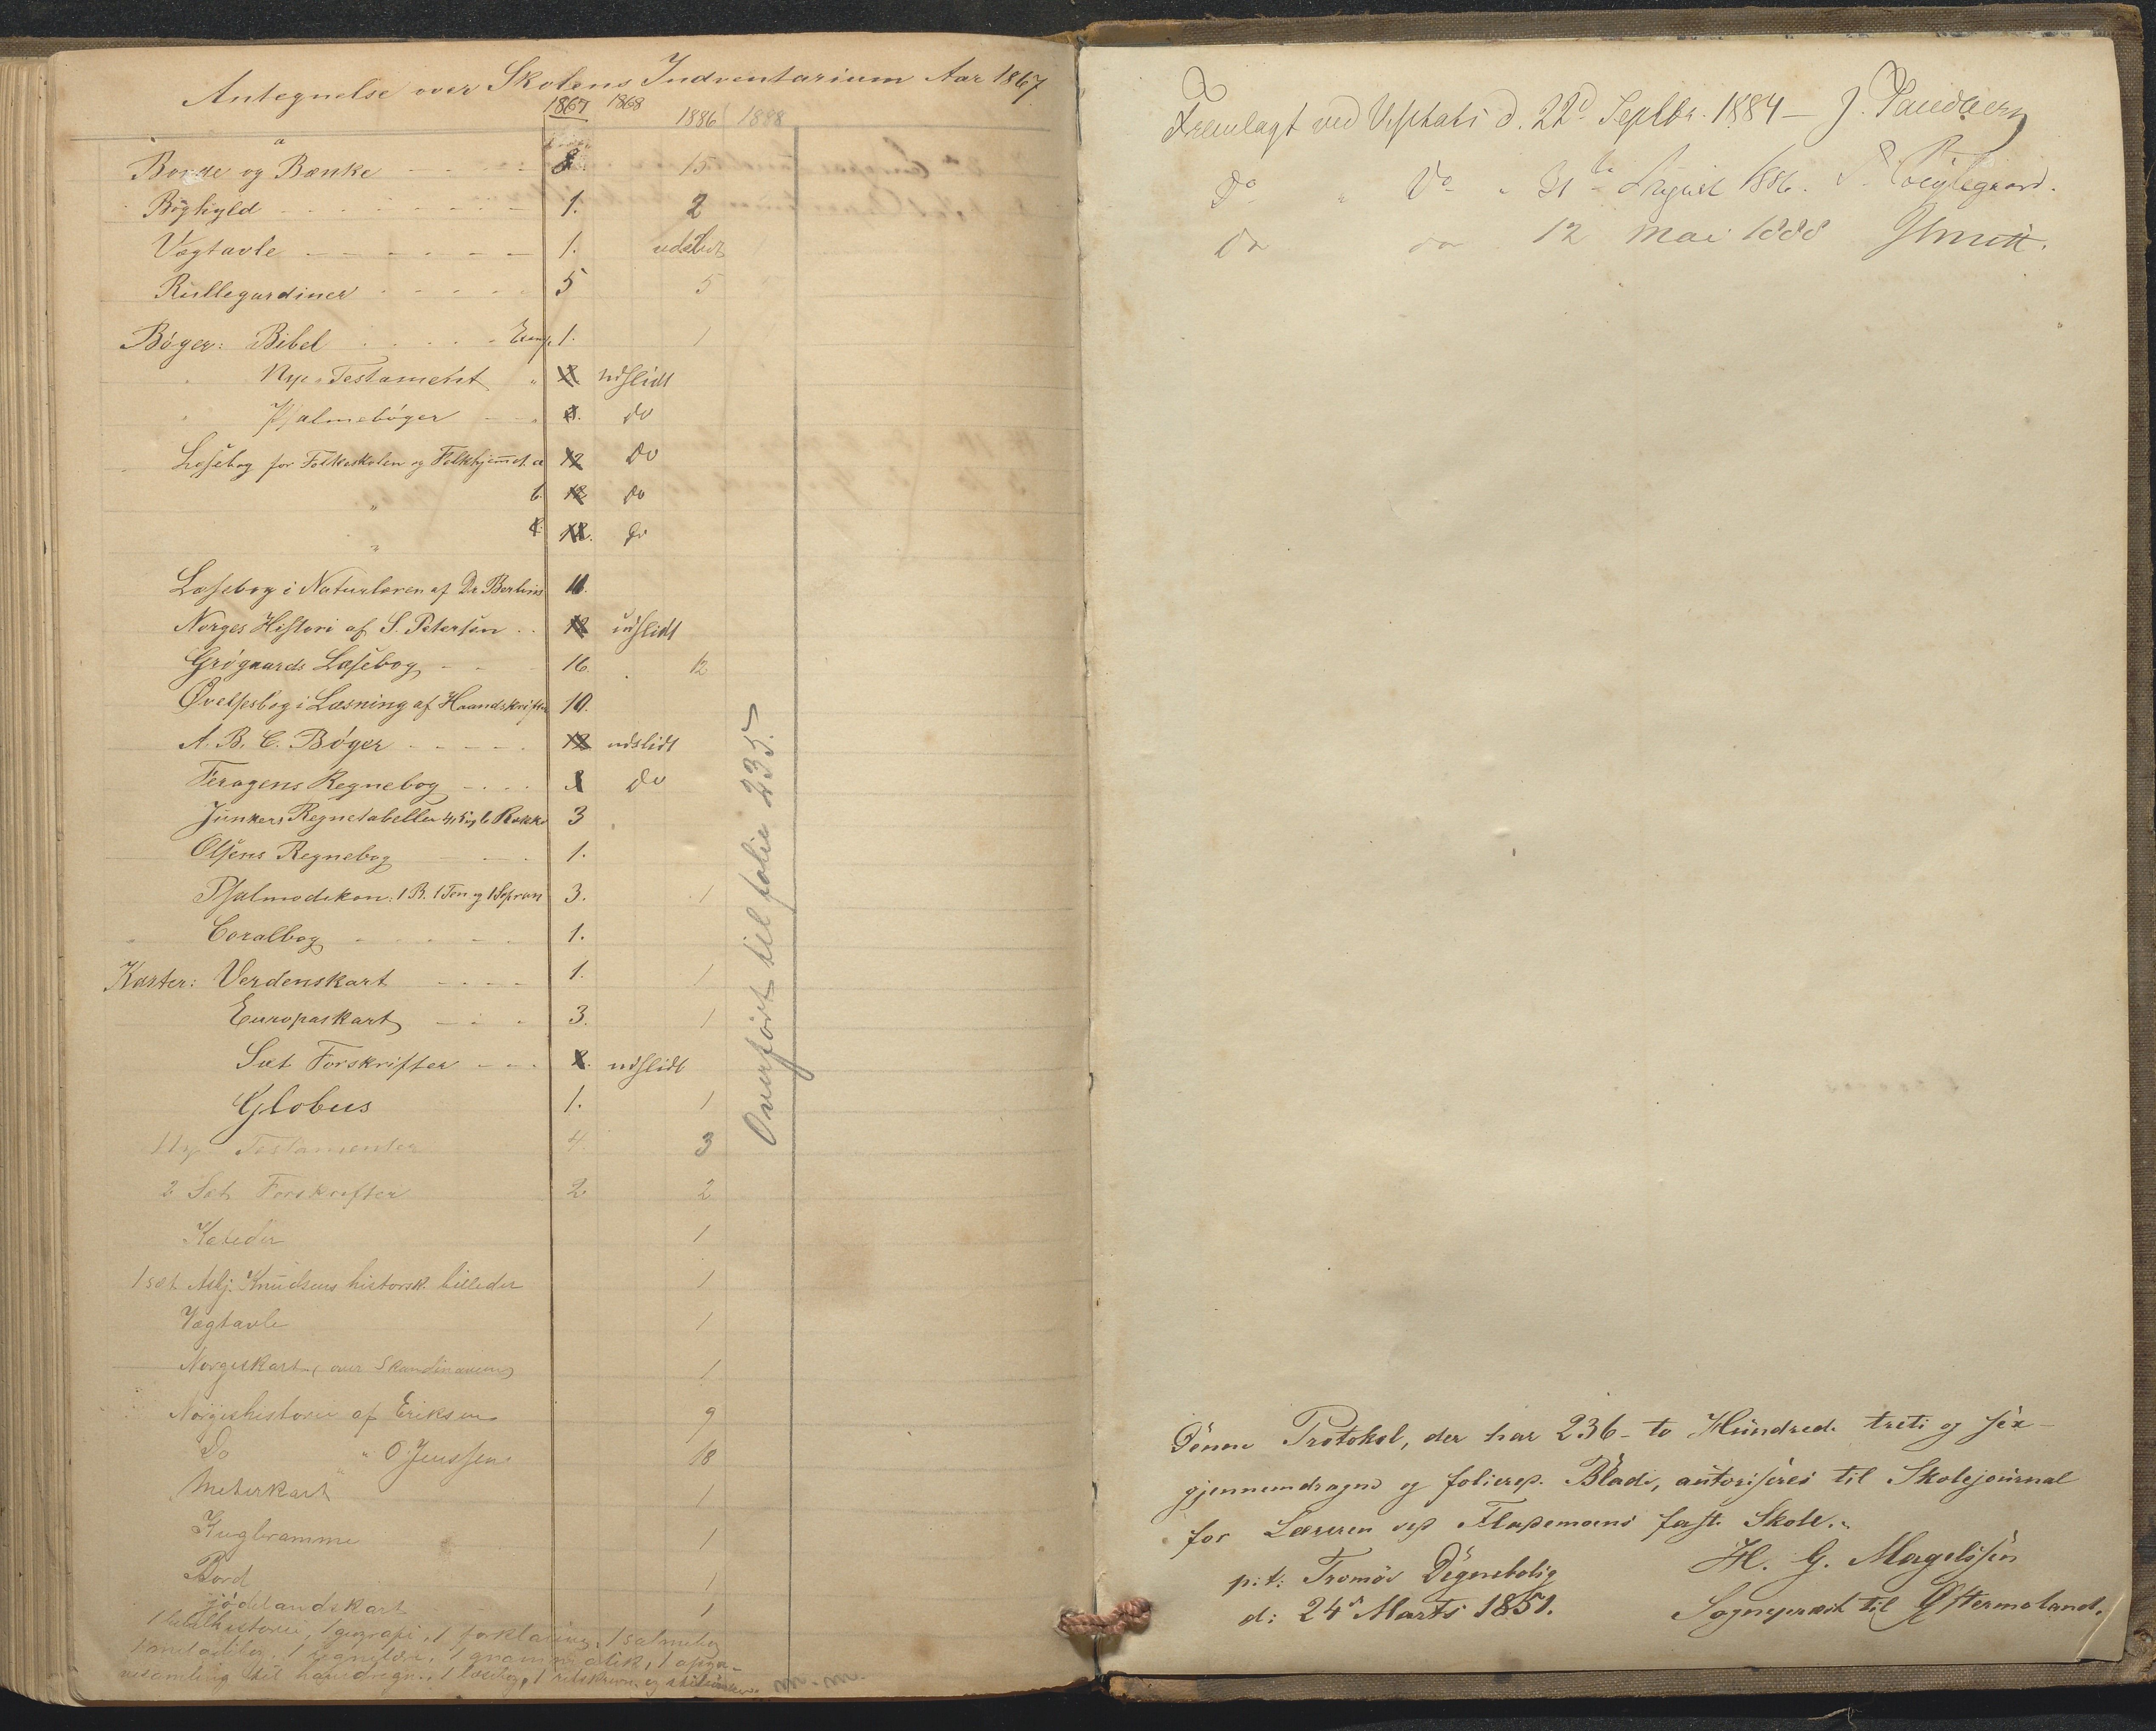 Antegnelse over Skolens Indventarium Aar 1867
1867 1868 1886 1888
Borde og Bænke 15
Boghyld 1. 2
Vægtavle 1. udslidt
Rullegardiner 5 5
Bøger: Bibel Exmp. 1. 1
Nye Testament " udslidt
Psalmebøger do
Læsebog for Folkeskolen og Folkhjemmet a 12 do
" b. 12 do
" 12. do
Læsebog i Naturlæren af Dr Berlin 11.
Norges Histori af S. Petersen 12 udslidt
Grøgaards Læsebog 16. 12
Øvelsesbog i Læsning af Haandskrifter 10.
A. B. C. Bøger 12 udslidt
Feragens Regnebog do
Junkers Regnetabeller 4, 5 og 6 Række 3
Olsens Regnebog 1.
Psalmodikon: 1 B. 1 Ten og 1 Sopran 3. 1
Coralbog 1.
Karter: Verdenskart 1. 1
Europaskart 3. 1
Sæt Forskrifter udslidt
Globus 1. 1
Testamenter 4. 3
2 Sæt Forskrifter 2 2
Kateder 1
1 sæt Asbj. Knudsens historisk. billeder 1
Vægtavle 1
Norgeskart (over Skandinavien) 1
Norgeshistorie af Eriksen 9
Do " O. Jenssen 18
Meterkart 1
Kugleramme 1
Bord 1
jødelandskart 1
1 bibelhistorie, 1 geografi, 1 forklaring, 1 salmebog
1 melodibog, 1 regnelære, 1 grammatik, 1 opga-
vesamling til hovedregn., 1 læsebog, 1
Overført til folie 235.
Fremlagt ved Visitats d. 22d Septbr. 1884 —
Do " Do " 31te August 1886.
Do do 12 Mai 1888 Smitt.
Denne Protokol, der har 236 - to Hundrede treti og sex -
gjennemdragne og folierede Blade, autoriseres til Skolejournal
for Læreren ved faste Skole.
p.t: Tromø Degnebolig
d: 24de Marts 1851.
H. G. Magelssen
Sogneprest til Østermoland.